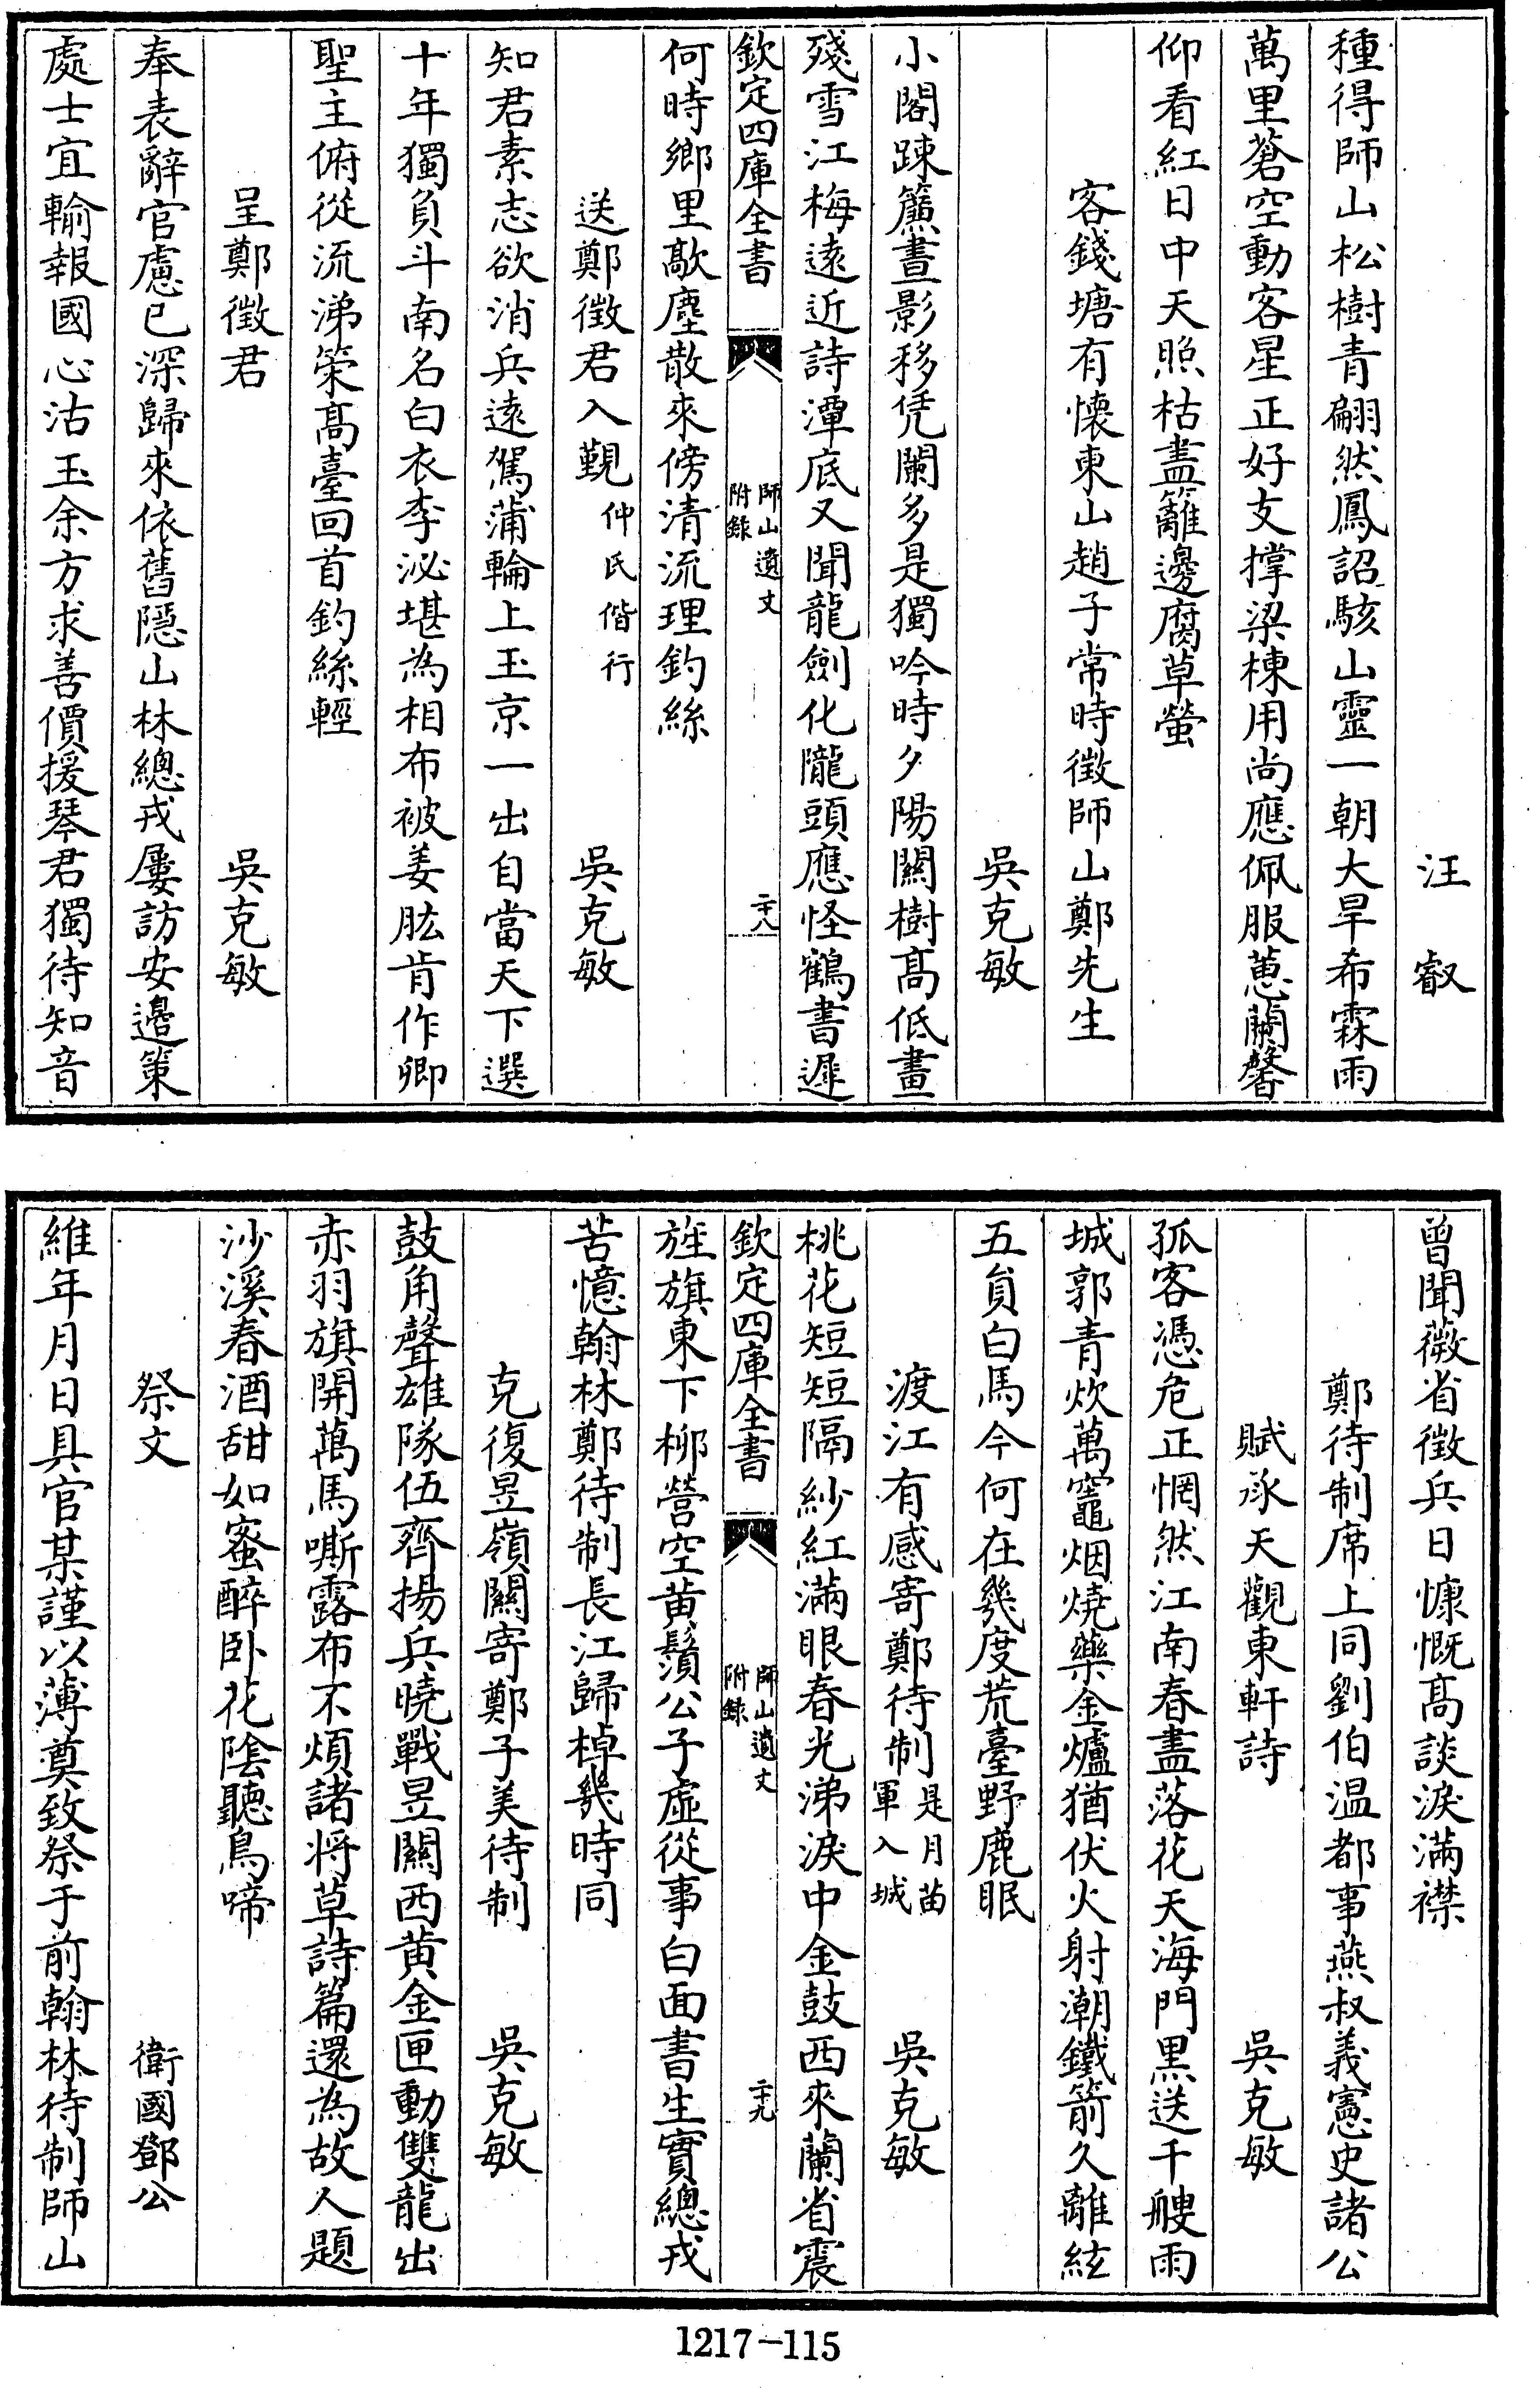 汪叡
種得師山松樹青翩然鳳詔駭山靈一朝大旱希霖雨
萬里蒼空動客星正好支撐梁棟用尚應佩服蕙蘭馨
仰看紅日中天照枯盡籬邊腐草螢
客錢塘有懷東山趙子常時徵師山鄭先生
吳克敏
小閣踈簾晝影移凭闌多是獨吟時夕陽關樹髙低畫
殘雪江梅遠近詩潭底又聞龍劍化隴頭應怪鶴書遲
欽定四庫全書
師山遺文
附錄
二十八
何時鄉里歊塵散來傍清流理釣絲
送鄭徵君入覲仲氏偕行 吳克敏
知君素志欲消兵遠駕蒲輪上玉京一出自當天下選
十年獨負斗南名白衣李泌堪為相布被姜肱肯作卿
聖主俯從流涕策髙臺回首釣絲輕
呈鄭徵君 吳克敏
奉表辭官慮已深歸來依舊隱山林總戎屢訪安邊策
處士宜輸報國心沽玉余方求善價援琴君獨待知音
曾聞薇省徵兵日慷慨髙談淚滿襟
鄭待制席上同劉伯温都事燕叔義憲史諸公
賦承天觀東軒詩 吳克敏
孤客憑危正惘然江南春盡落花天海門黒送千艘雨
城郭青炊萬竈烟燒藥金爐猶伏火射潮鐵箭久離絃
五貟白馬今何在幾度荒臺野鹿眠
渡江有感寄鄭待制是月苗軍入城 吳克敏
桃花短短隔紗紅滿眼春光涕淚中金鼓西來蘭省震
欽定四庫全書
師山遺文
附錄
二十九
旌旗東下柳營空黄鬚公子虛從事白面書生實總戎
苦憶翰林鄭待制長江歸棹幾時同
克復昱嶺關寄鄭子美待制 吳克敏
鼓角聲雄隊伍齊揚兵曉戰昱關西黄金匣動雙龍出
赤羽旗開萬馬嘶露布不煩諸將草詩篇還為故人題
沙溪春酒甜如蜜醉卧花陰聽鳥啼
祭文 衛國鄧公
維年月日具官某謹以薄奠致祭于前翰林待制師山
1217-115